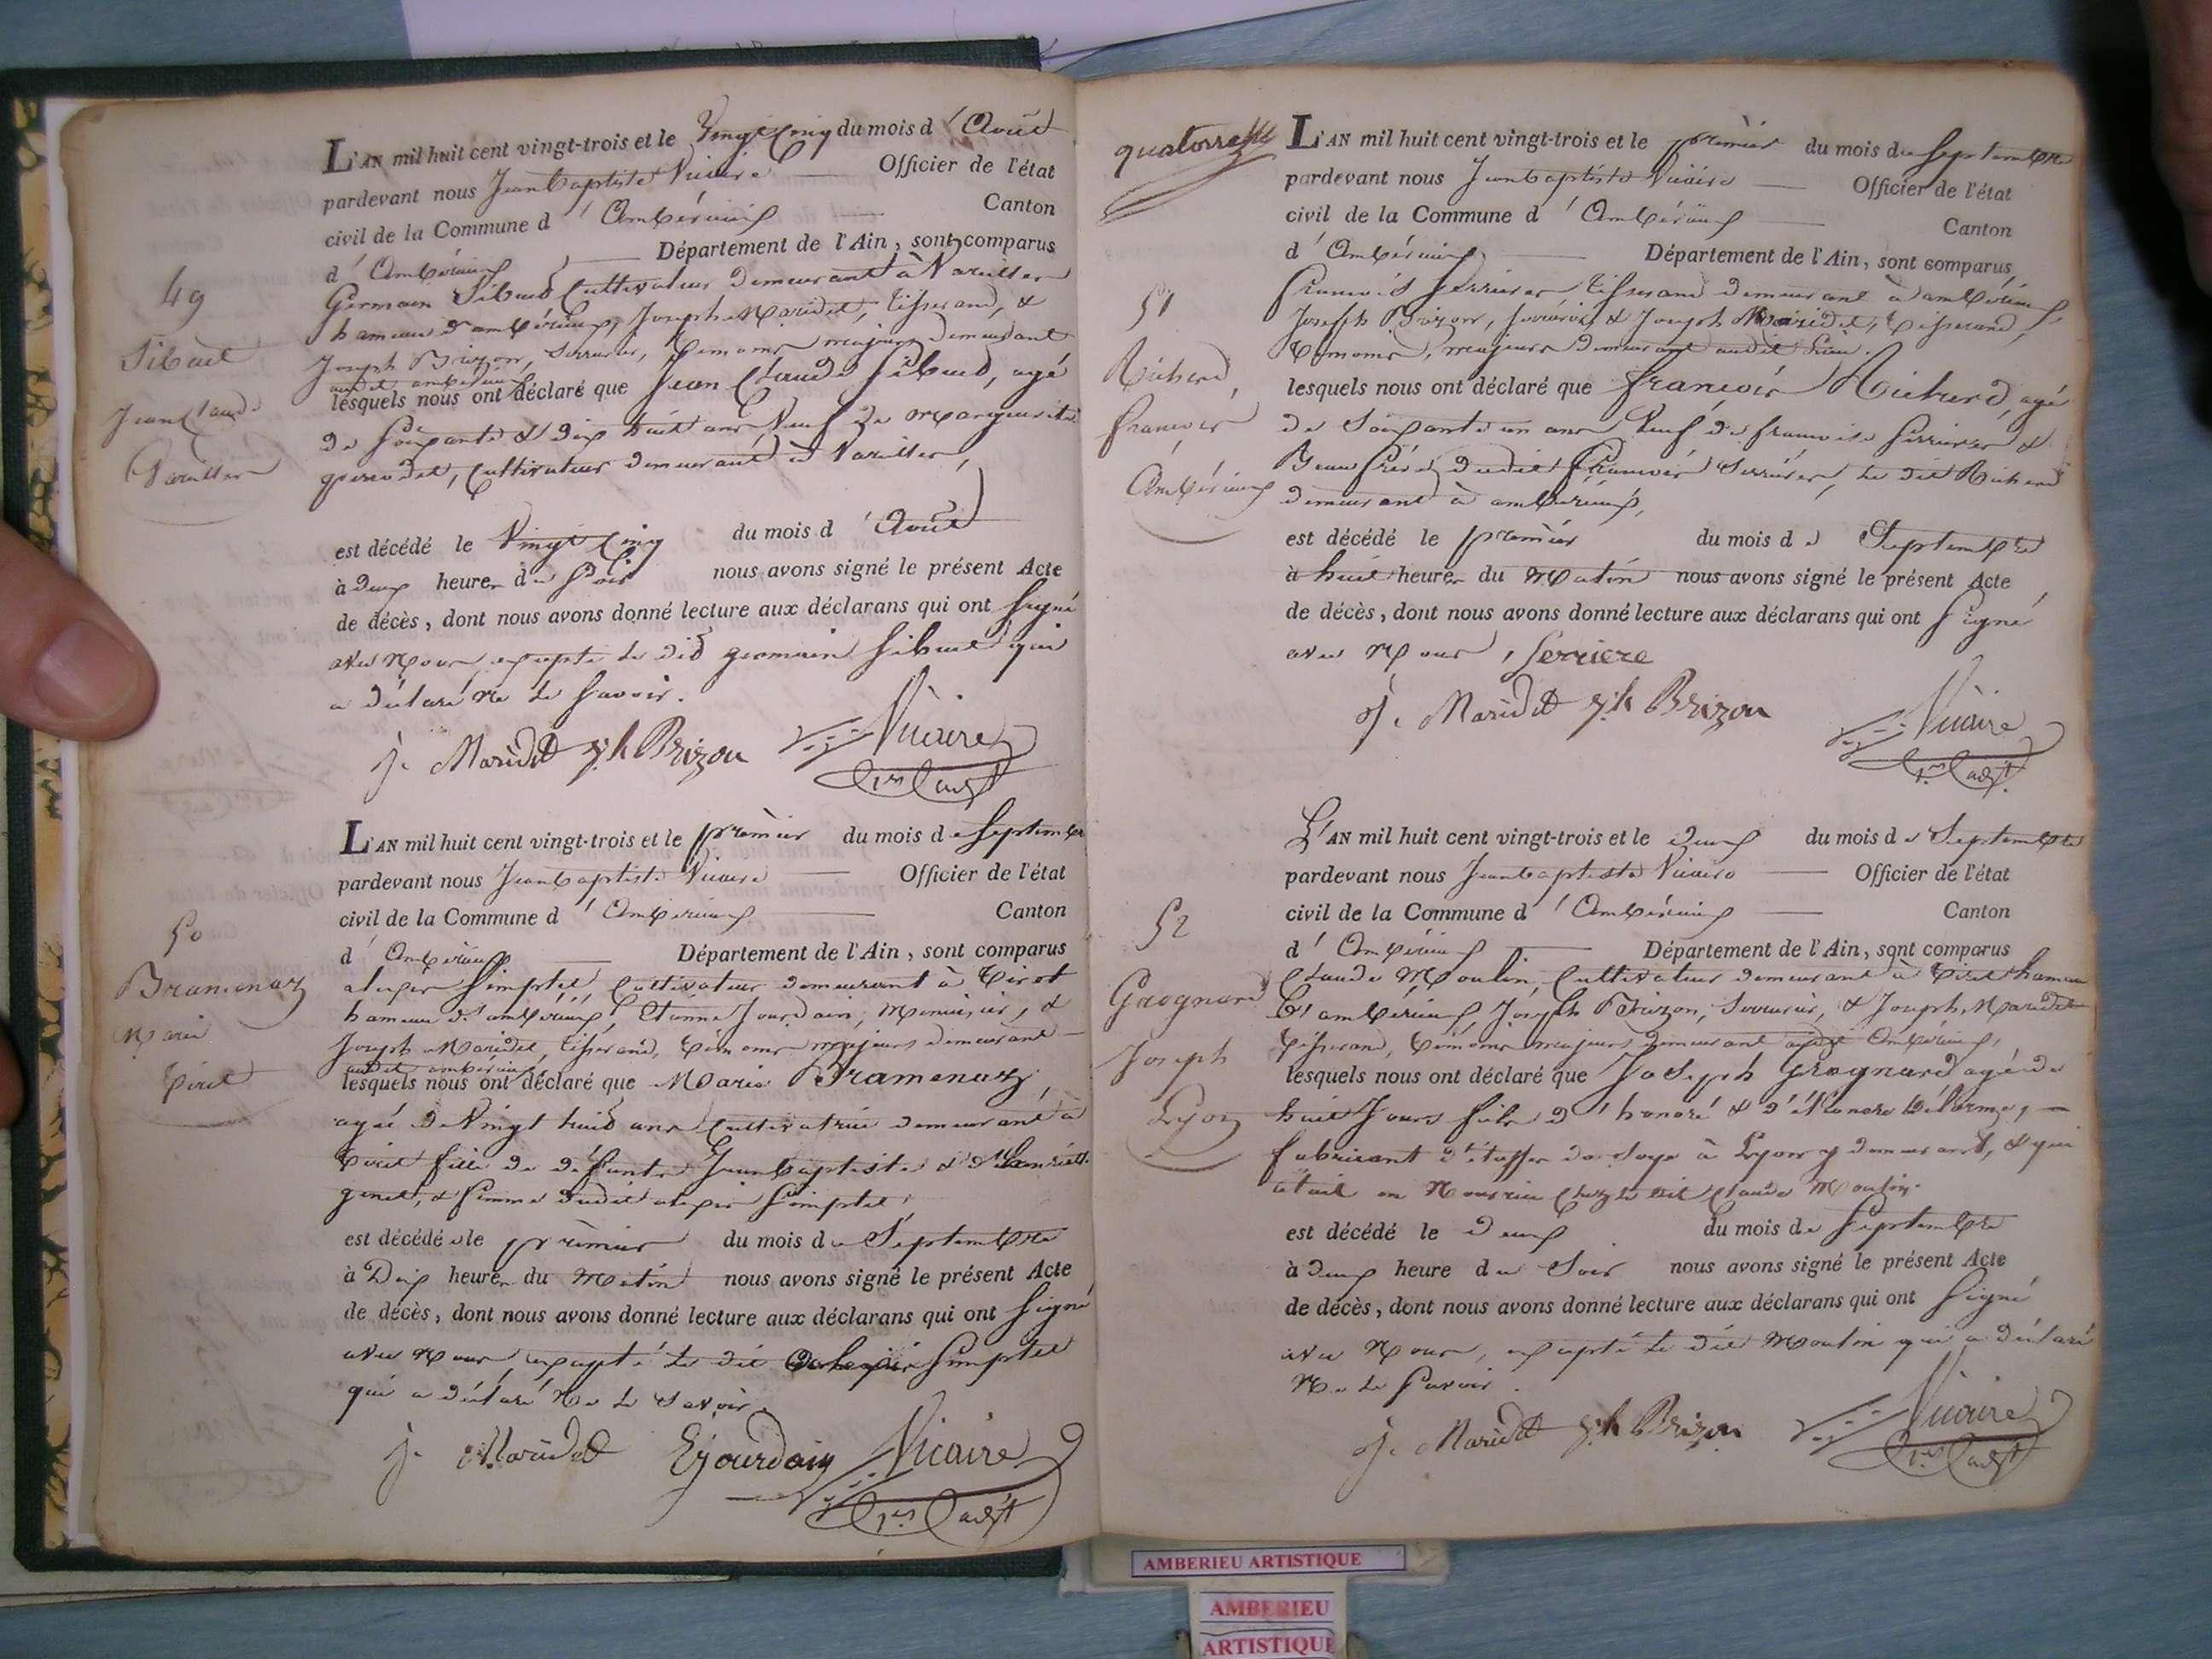 49
Sibuet
Jean Claude
Vareilles
L'AN mil huit cent vingt-trois et le Vingt Cinq du mois d'Août
pardevant nous Jean baptiste Vicaire Officier de l'état
civil de la Commune d'Ambérieux Canton
d'Ambérieux Département de l'Ain, sont comparus
Germain Sibuet Cultivateur demeurant à Vareilles
hameau d'ambérieux, Joseph Maridet, tisserand, &
Joseph Brizon, Serrurier, témoins majeurs demeurant
audit ambérieux
lesquels nous ont déclaré que Jean Claude Sibuet, agé
de Soixante & dix huit ans Veuf de Marguerite
, Cultivateur demeurant à Vareilles,
est décédé le Vingt Cinq du mois d'Août
à deux heures du Soir nous avons signé le présent Acte
de décès, dont nous avons donné lecture aux déclarans qui ont Signé
avec Nous excepté le dit germain Sibuet qui
a déclaré Ne le Savoir.
J. Maridet Jh Brizon Vicaire
50
Bramenaz
Marie
Tiret
L'AN mil huit cent vingt-trois et le premier du mois de Septembre
pardevant nous Jean baptiste Vicaire Officier de l'état
civil de la Commune d'Ambérieux Canton
d'Ambérieux Département de l'Ain, sont comparus
alexis Simptel, Cultivateur demeurant à Tiret
hameau d'ambérieux, Etienne Jourdain, Menuisier, &
Joseph Maridet, tisserand, témoins majeurs demeurant
audit ambérieux
lesquels nous ont déclaré que Marie Bramenaz,
agée de Vingt huit ans Cultivatrice demeurant à
Tiret fille de défunts Jean baptiste &
genet, & femme dudit alexis Simptel,
est décédée le premier du mois de Septembre
à Dix heures du Matin nous avons signé le présent Acte
de décès, dont nous avons donné lecture aux déclarans qui ont Signé
avec Nous excepté le dit alexis Simptel
qui a déclaré Ne le Savoir.
J. Maridet Ejourdain Vicaire
quatorze
51
Richerd,
francois
Ambérieux
L'AN mil huit cent vingt-trois et le premier du mois de Septembre
pardevant nous Jean baptiste Vicaire Officier de l'état
civil de la Commune d'Ambérieux Canton
d'Ambérieux Département de l'Ain, sont comparus,
francois Serrieres tisserand demeurant à ambérieux,
Joseph Brizon, Serrurier & Joseph Maridet, tisserand,
témoins, majeurs demeurant audit lieu.
lesquels nous ont déclaré que francois Richerd, agé
de Soixante un ans Veuf de francoise Serrieres &
Beau frère dudit francois Serrieres, le dit Richerd
demeurant à ambérieux,
est décédé le premier du mois de Septembre
à huit heures du Matin nous avons signé le présent Acte
de décès, dont nous avons donné lecture aux déclarans qui ont Signé
avec Nous, Serriere
J. Maridet Jh Brizon Vicaire
52
Grognard
Joseph
Lyon
L'AN mil huit cent vingt-trois et le deux du mois de Septembre
pardevant nous Jean baptiste Vicaire Officier de l'état
civil de la Commune d'Ambérieux Canton
d'Ambérieux Département de l'Ain, sont comparus
Claude Moulin, Cultivateur demeurant à Tiret hameau
d'ambérieux, Joseph Brizon, Serrurier, & Joseph Maridet
tisserand, témoins majeurs demeurant audit Ambérieux,
lesquels nous ont déclaré que Joseph Grognard agé de
huit Jours fils d'honoré & d'éléonore Délorme,
fabricant d'étoffe de Soye à Lyon y demeurant, & qui
était en Nourrice chez le dit Claude Moulin.
est décédé le deux du mois de Septembre
à deux heure du Soir nous avons signé le présent Acte
de décès, dont nous avons donné lecture aux déclarans qui ont Signé
avec Nous, excepté le dit Moulin qui a déclaré
Ne le Savoir.
J. Maridet Jh Brizon Vicaire
AMBERIEU ARTISTIQUE
AMBERIEU
ARTISTIQUE